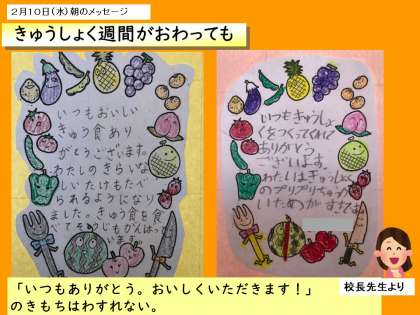 ２月１０日（水）朝のメッセージ
きゅうしょく週間がおわっても
いつもおいしい
きゅう食あり
がとうございます。
わたしのきらいな
しいたけもたべ
られるようになり
ました。きゅう食を食
べて
いつもきゅうしょ
くをつくってくれて
ありがとう
ございます。
わたしはきゅうしょく
の
校長先生より
「いつもありがとう。おいしくいただきます！」
のきもちはわすれない。